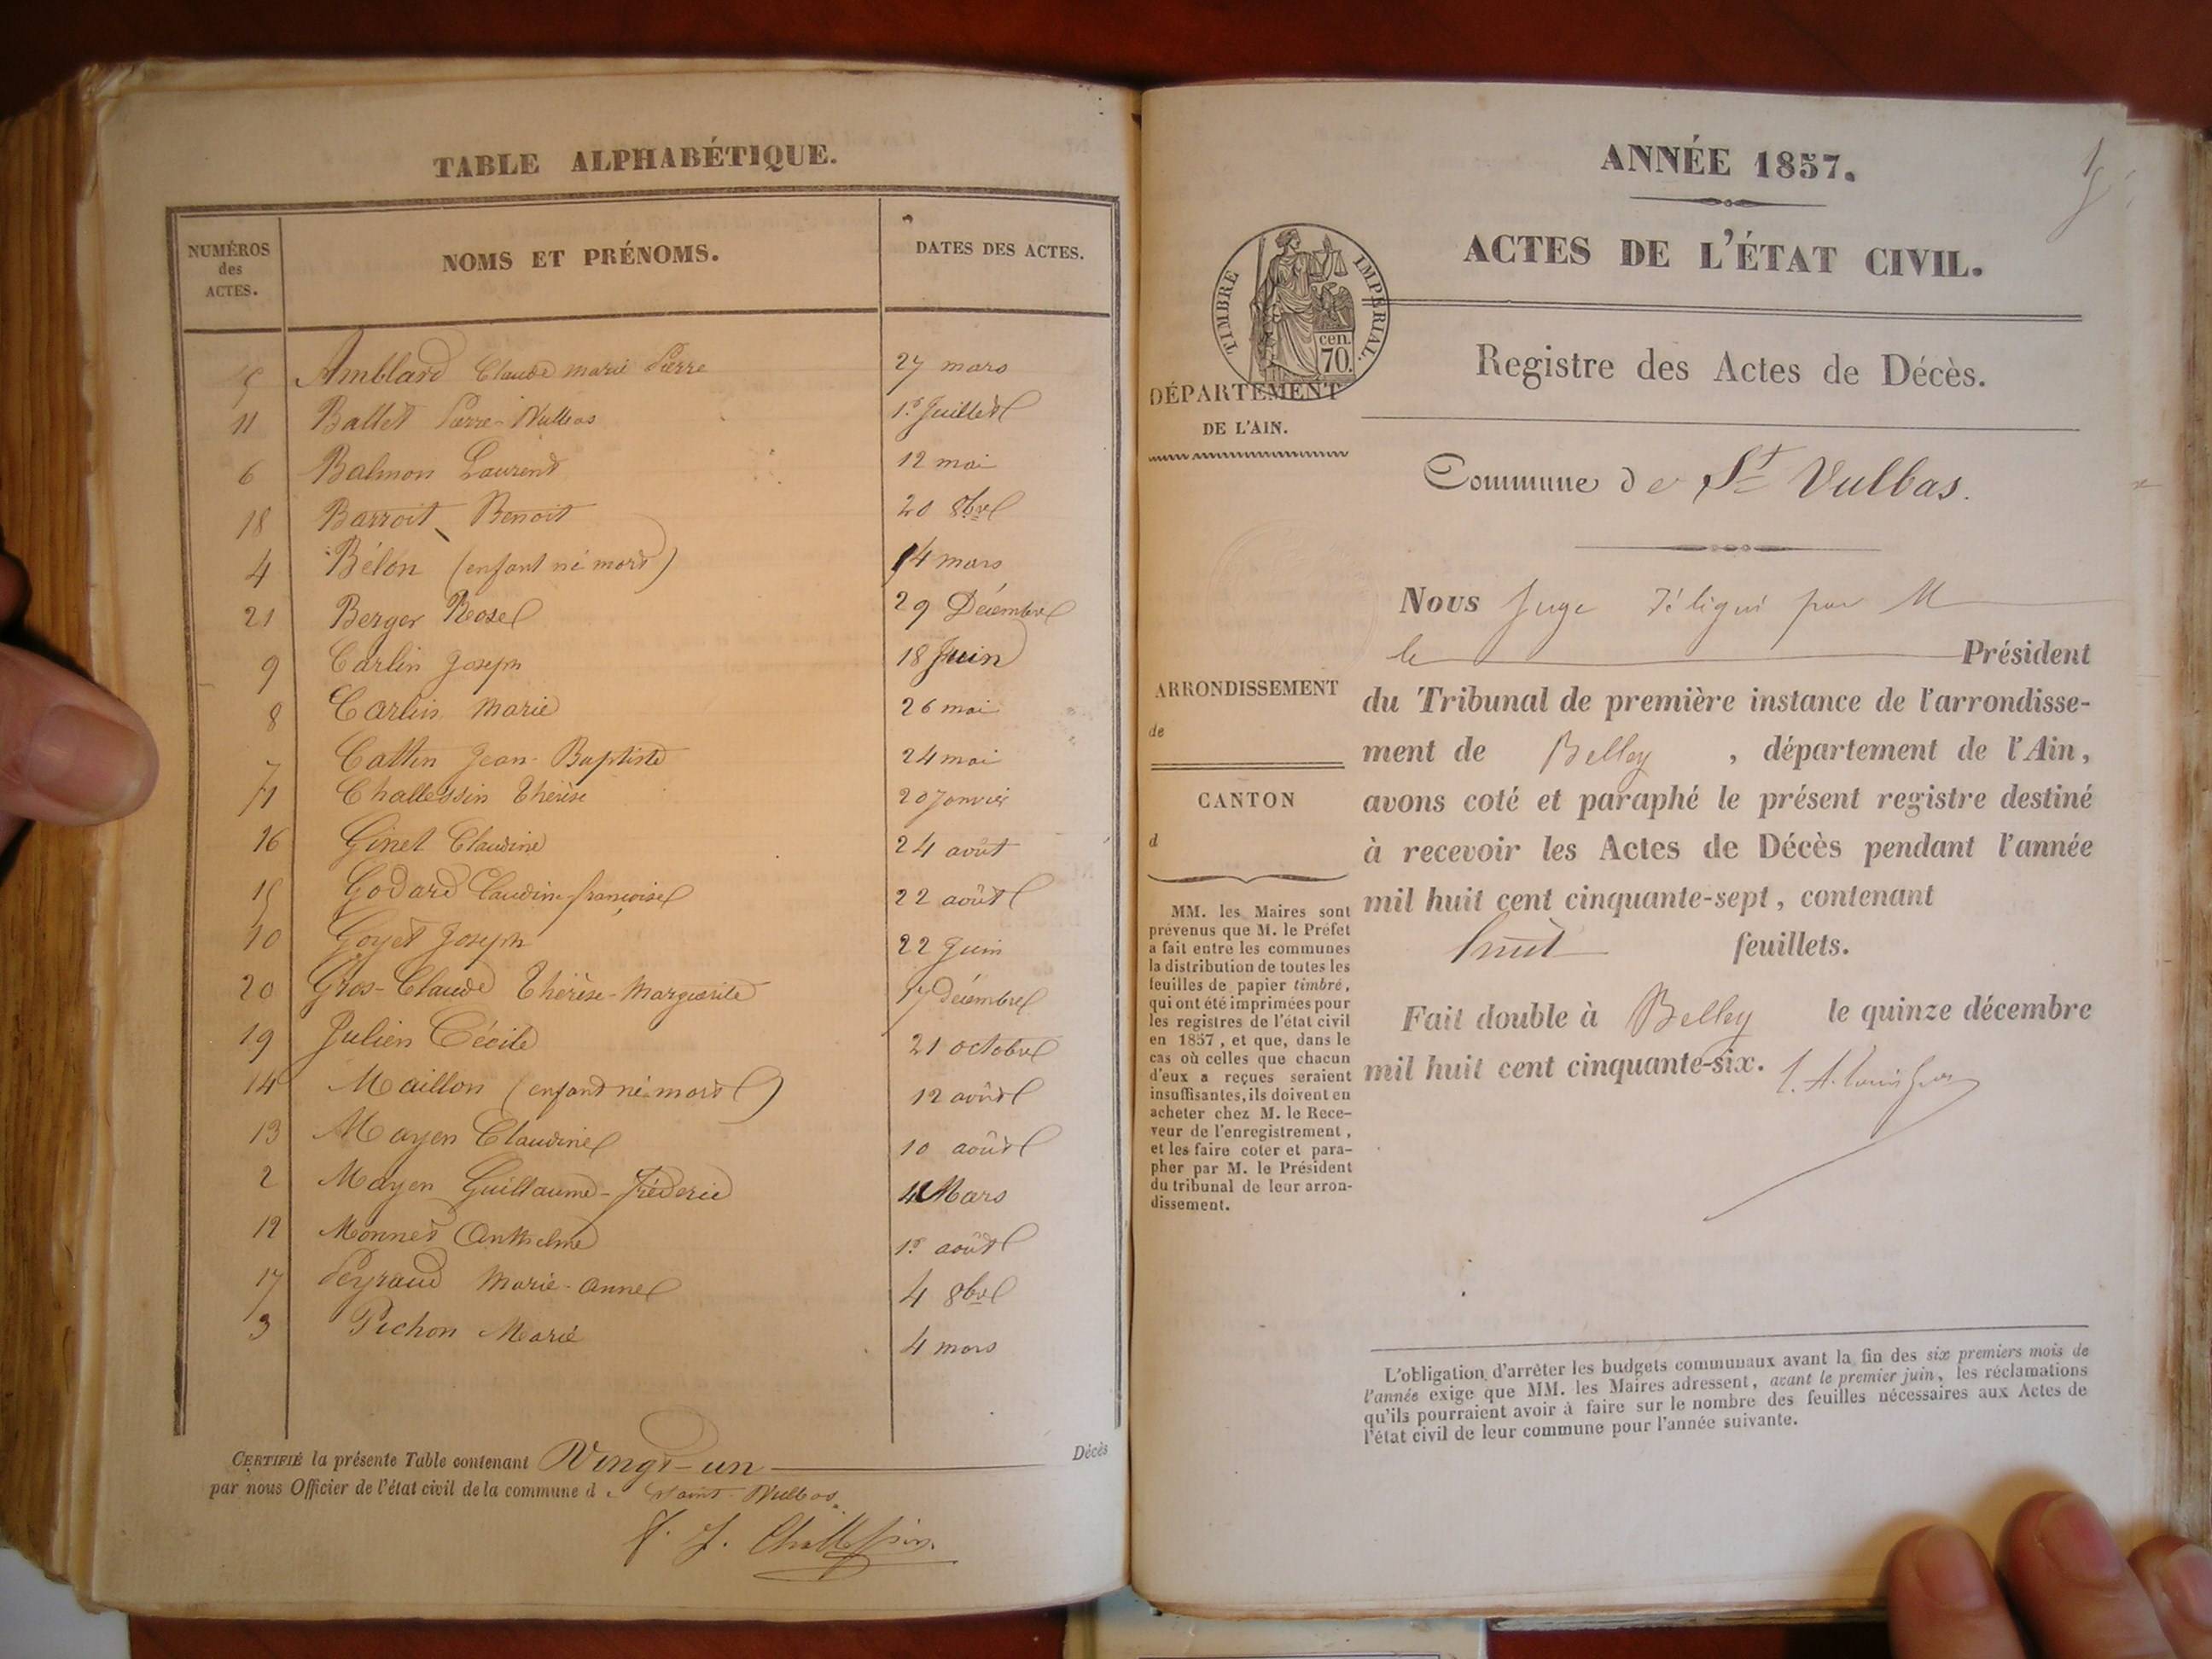 TABLE ALPHABÉTIQUE.
NUMÉROS des ACTES. NOMS ET PRÉNOMS. DATES DES ACTES.
5 Amblard Claude marie Pierre 27 mars
11 Ballet Pierre-Vulbas 1er Juillet
6 Balmon Laurent 12 mai
18 Barroit Benoit 20 8bre
4 Bélon (enfant né mort) 14 mars
21 Berger Rose 29 Décembre
9 Carlin Joseph 18 Juin
8 Carlin Marie 26 mai
7 Cattin Jean-Baptiste 24 mai
1 Challessin Thérèse 20 Janvier
16 Ginet Claudine 24 août
15 Godard Claudine-françoise 22 août
10 Goyet Joseph 22 Juin
20 Gros-Claude Thérèse-Marguerite 7 Décembre
19 Julien Cécile 21 octobre
14 Maillon (enfant né mort) 12 août
13 Mayen Claudine 10 août
2 Mayen Guillaume-Fréderic 4 Mars
12 Monnet Anthelme 1er août
17 Peyraud Marie-anne 4 8bre
3 Pichon Marie 4 mars
CERTIFIÉ la présente Table contenant Vingt-un Décès
par nous Officier de l'état civil de la commune de Saint-Vulbas.
ANNÉE 1857.
ACTES DE L'ÉTAT CIVIL.
TIMBRE IMPÉRIAL.
cen.
70.
Registre des Actes de Décès.
DÉPARTEMENT
DE L'AIN.
Commune de St Vulbas.
Nous Juge délégué par M
le Président
du Tribunal de première instance de l'arrondisse-
ment de Belley, département de l'Ain,
avons coté et paraphé le présent registre destiné
à recevoir les Actes de Décès pendant l'année
mil huit cent cinquante-sept, contenant
huit feuillets.
Fait double à Belley le quinze décembre
mil huit cent cinquante-six.
ARRONDISSEMENT
de
CANTON
d
MM. les Maires sont
prévenus que M. le Préfet
a fait entre les communes
la distribution de toutes les
feuilles de papier timbré,
qui ont été imprimées pour
les registres de l'état civil
en 1857, et que, dans le
cas où celles que chacun
d'eux a reçues seraient
insuffisantes, ils doivent en
acheter chez M. le Rece-
veur de l'enregistrement,
et les faire coter et para-
pher par M. le Président
du tribunal de leur arron-
dissement.
L'obligation d'arrêter les budgets communaux avant la fin des six premiers mois de
l'année exige que MM. les Maires adressent, avant le premier juin, les réclamations
qu'ils pourraient avoir à faire sur le nombre des feuilles nécessaires aux Actes de
l'état civil de leur commune pour l'année suivante.